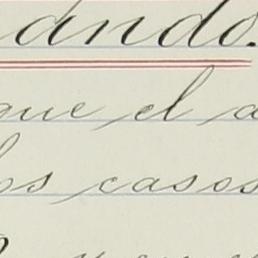 ando.
que el a
los casos